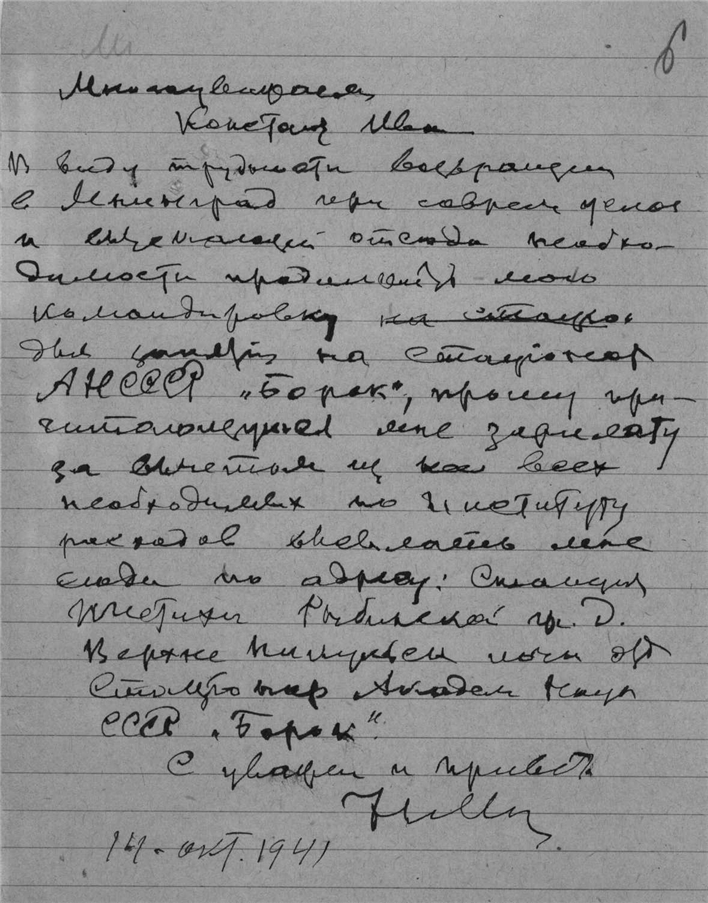 6
Многоуважаем
Констант Иван
В виду трудности возвращен
в Ленинград при соврем услов
и вытекающей отсюда необхо-
димости продолжать мою
командировку на стацио
для на стационар
АН СССР „Борок“, прошу при-
читающуюся мне зарплату
за вычетом из на всех
необходимых по Институту
расходов высылать мне
сюда по адресу: Станция
Шестихи Рыбинской ж. Д.
Верхне
Стационар Академ Наук
СССР „Борок“.
С уважен и привет
14. окт. 1941